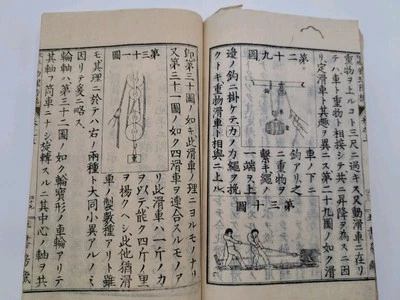 重物ヲ上ルコト三尺ニ過ギス又動滑車ニ在リ
テハ車ト重物ト相接シテ共ニ昇降ヲ為スニ因
リ定滑車ト其趣ヲ異ニス第二十九圖ノ如ク滑
車ノ下ニ
鉤アリ之
ニ重物ヲ
繫キ繩ノ
一端ヲ上
第二十九圖
第三十圖
邊ノ鉤ニ掛ケテ力ノ方ヨリ繩ヲ挽
クトキハ重物滑車ト相與ニ上ル
即第三十圖ノ如シ此滑車ノ理ニヨルモノナリ
又第三十一圖ノ如ク四滑車ヲ連合スルモノア
第三十一圖
リ此滑車ハ一斤ノ力
ヲ以テ能ク四斤ノ重
ヲ揚クヘシ此他猶滑
車ノ製數種アリト雖
モ其理ニ於テハ右ノ兩種ト大同小異アルノミ
因リテ爰ニ略ス
輪軸ハ第三十二圖ノ如ク輪寳形ノ車輪アリテ
其軸ヲ筒車ニナシ旋轉スルニ其中心ノ軸ヲ共